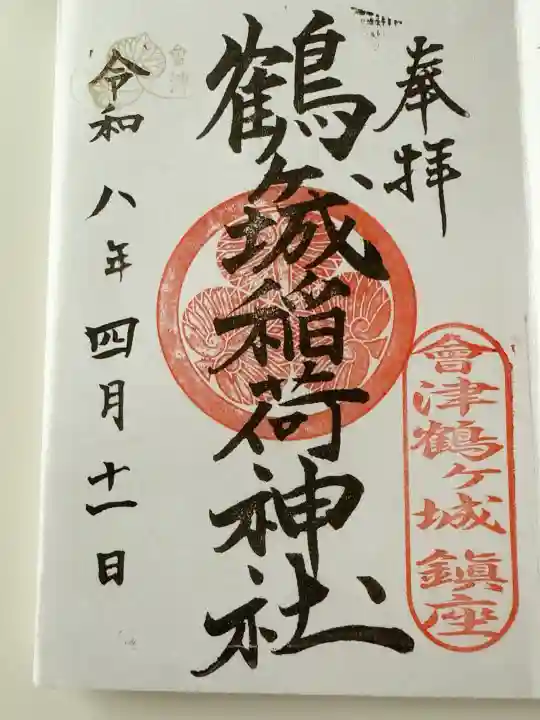 奉拝
會津鶴ヶ城鎮座
鶴ヶ城稲荷神社
令和八年四月十一日
會津